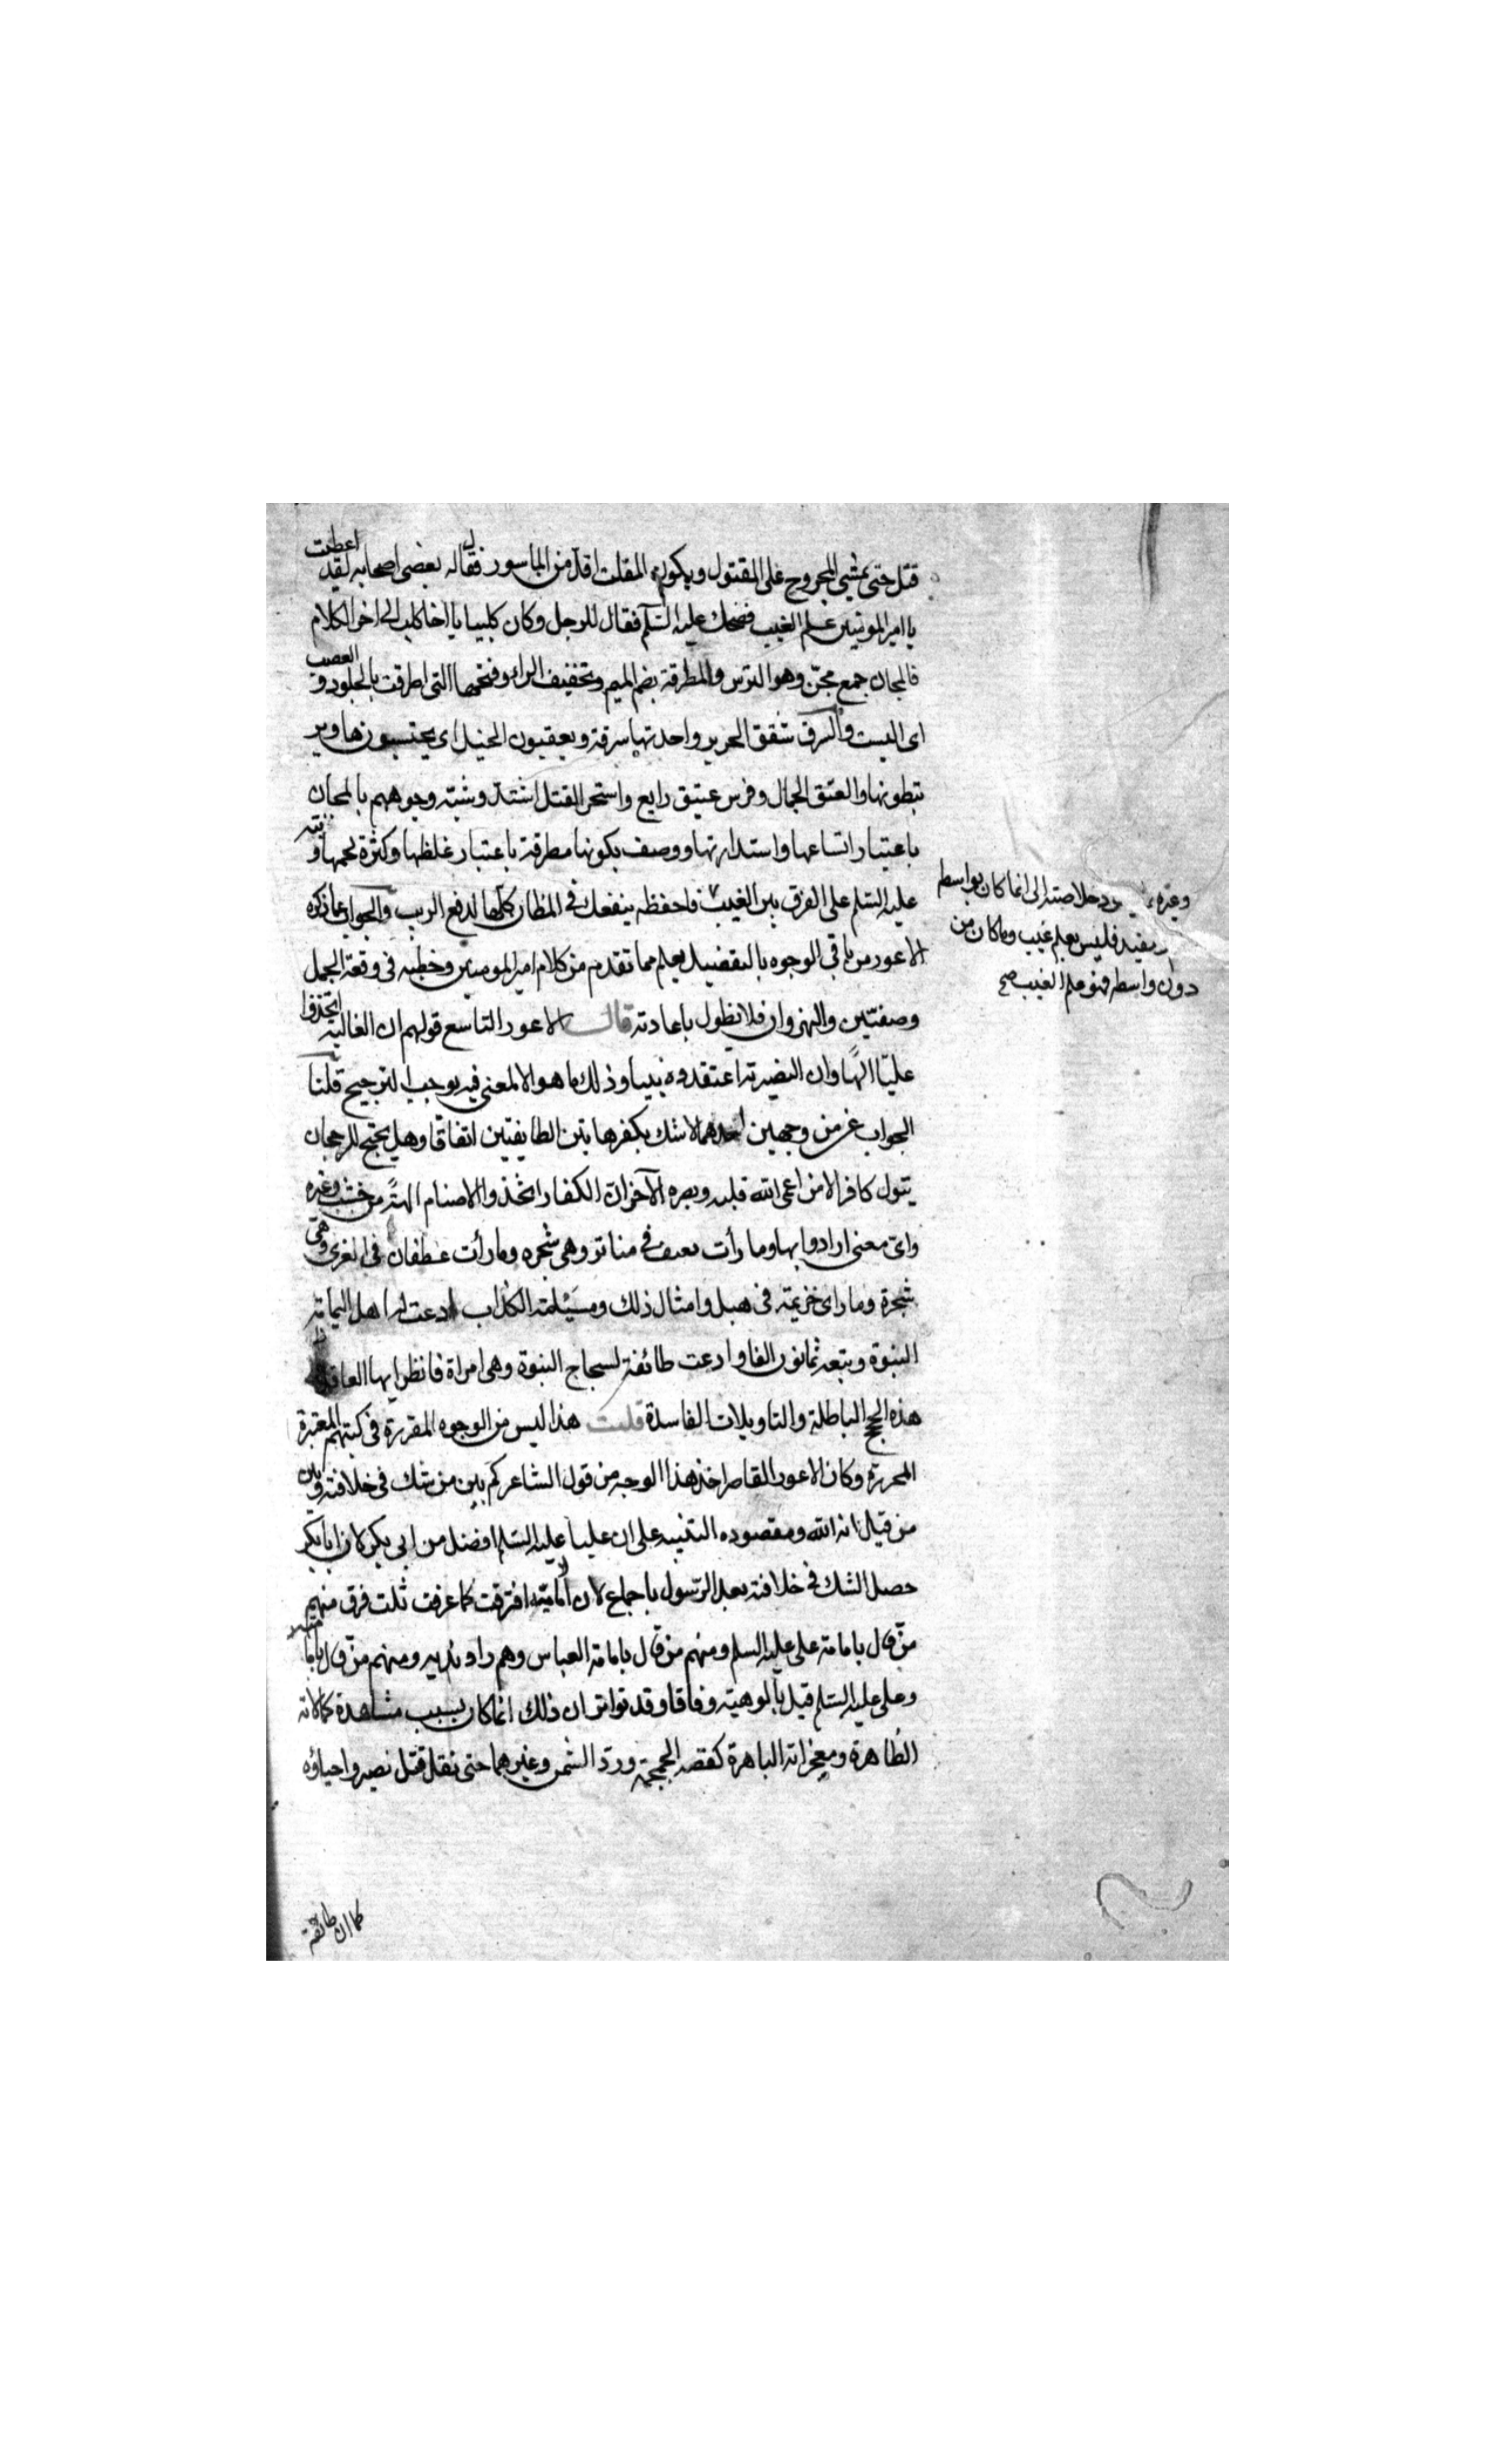 قتل حتى يمشي المجروح على المقتول ويكون المفلت اقل من الماسور فقال له بعض اصحابه لقد اعطيت
يا امير المومنين علم الغيب فضحك عليه السّلم فقال للرجل وكان كلبيا يا اخا كلب الى اخر الكلام
فالمجان جمع مجنّ وهو الترس والمطرقة بضم الميم وتخفيف الراء وفتحها التي اطرقت بالجلود والعصب
اى البست والسرق شقق الحرير واحدتها سرقة ويعقبون الخيل اى يحتسبونها وير
تبطونها والعتق الجمال وفرس عتيق رايع واستحر القتل اشتدّ وشبّه وجوههم بالمجان
باعتبار اتساعها واستدارتها ووصف بكونها مطرقة باعتبار غلظها وكثرة لحمها ونبّه
عليه السّلم على الفرق بين الغيب فاحفظه ينفعك في المظان كلّها لدفع الريب والجواب عما ذكره
الاعور من باقي الوجوه بالتفضيل يعلم مما تقدم من كلام امير المومنين وخطبه في وقعة الجمل
وصفّين والنهروان فلا نطول باعادته قال الاعور التاسع قولهم ان الغالية اتخذوا
عليّا الهًا وان النصيرية اعتقدوه نبيا وذلك ما هو الا لمعنى فيه يوجب الترجيح قلنا
الجواب عن من وجهين احدهما لا شك بكفر هاتين الطايفتين اتفاقا وهل يحتج للرجحان
بقول كافر الا من اعمى الله قلبه وبصره الآخر ان الكفار اتخذوا الاصنام الهةً من خشب وغيره
واىّ معنى ارادوا بها وما رأت في مناة وهي شجرة وما رأت غطفان في العزى وهي
شجرة وما راى خزيمة في هبل وامثال ذلك ومسيلمة الكذاب ادعت له اهل اليمامة
النبوة وتبعه ثمانون الفا وادعت طائفة لسجاح النبوة وهي امراة فانظر ايها العاقل
هذه الحجج الباطلة والتاويلات الفاسدة قلت هذا ليس من الوجوه المقررة في كتبهم المعتبرة
المحررة وكان الاعور القاصر اخذ هذا الوجه من قول الشاعر كم بين من شك في خلافته وبين
من قيل انه الله ومقصوده التنبيه على ان عليا عليه السّلم افضل من ابي بكر لان ابا بكر
حصل الشك في خلافته بعد الرّسول باجماع لان الامامية افترقت كما عرفت ثلث فرق منهم
منّ قال بامامة على عليه السلم ومنهم من قال بامامة العباس وهم راوندية ومنهم من قال باما
وعلى عليه السّلم قيل بالوهيته وفاقا وقد تواتر ان ذلك انما كان بسبب مشاهدة كمالاته
الظاهرة ومعجزاته الباهرة كقصة الجمجمة وردّ الشمس وغيرهما حتى نقل قتل نصير واحياؤه
وغيره خلاصته الى انما كان بواسطه
فليس بعلم غيب وما كان من
دون واسطه فهو علم الغيب صح
كما ان طائفة